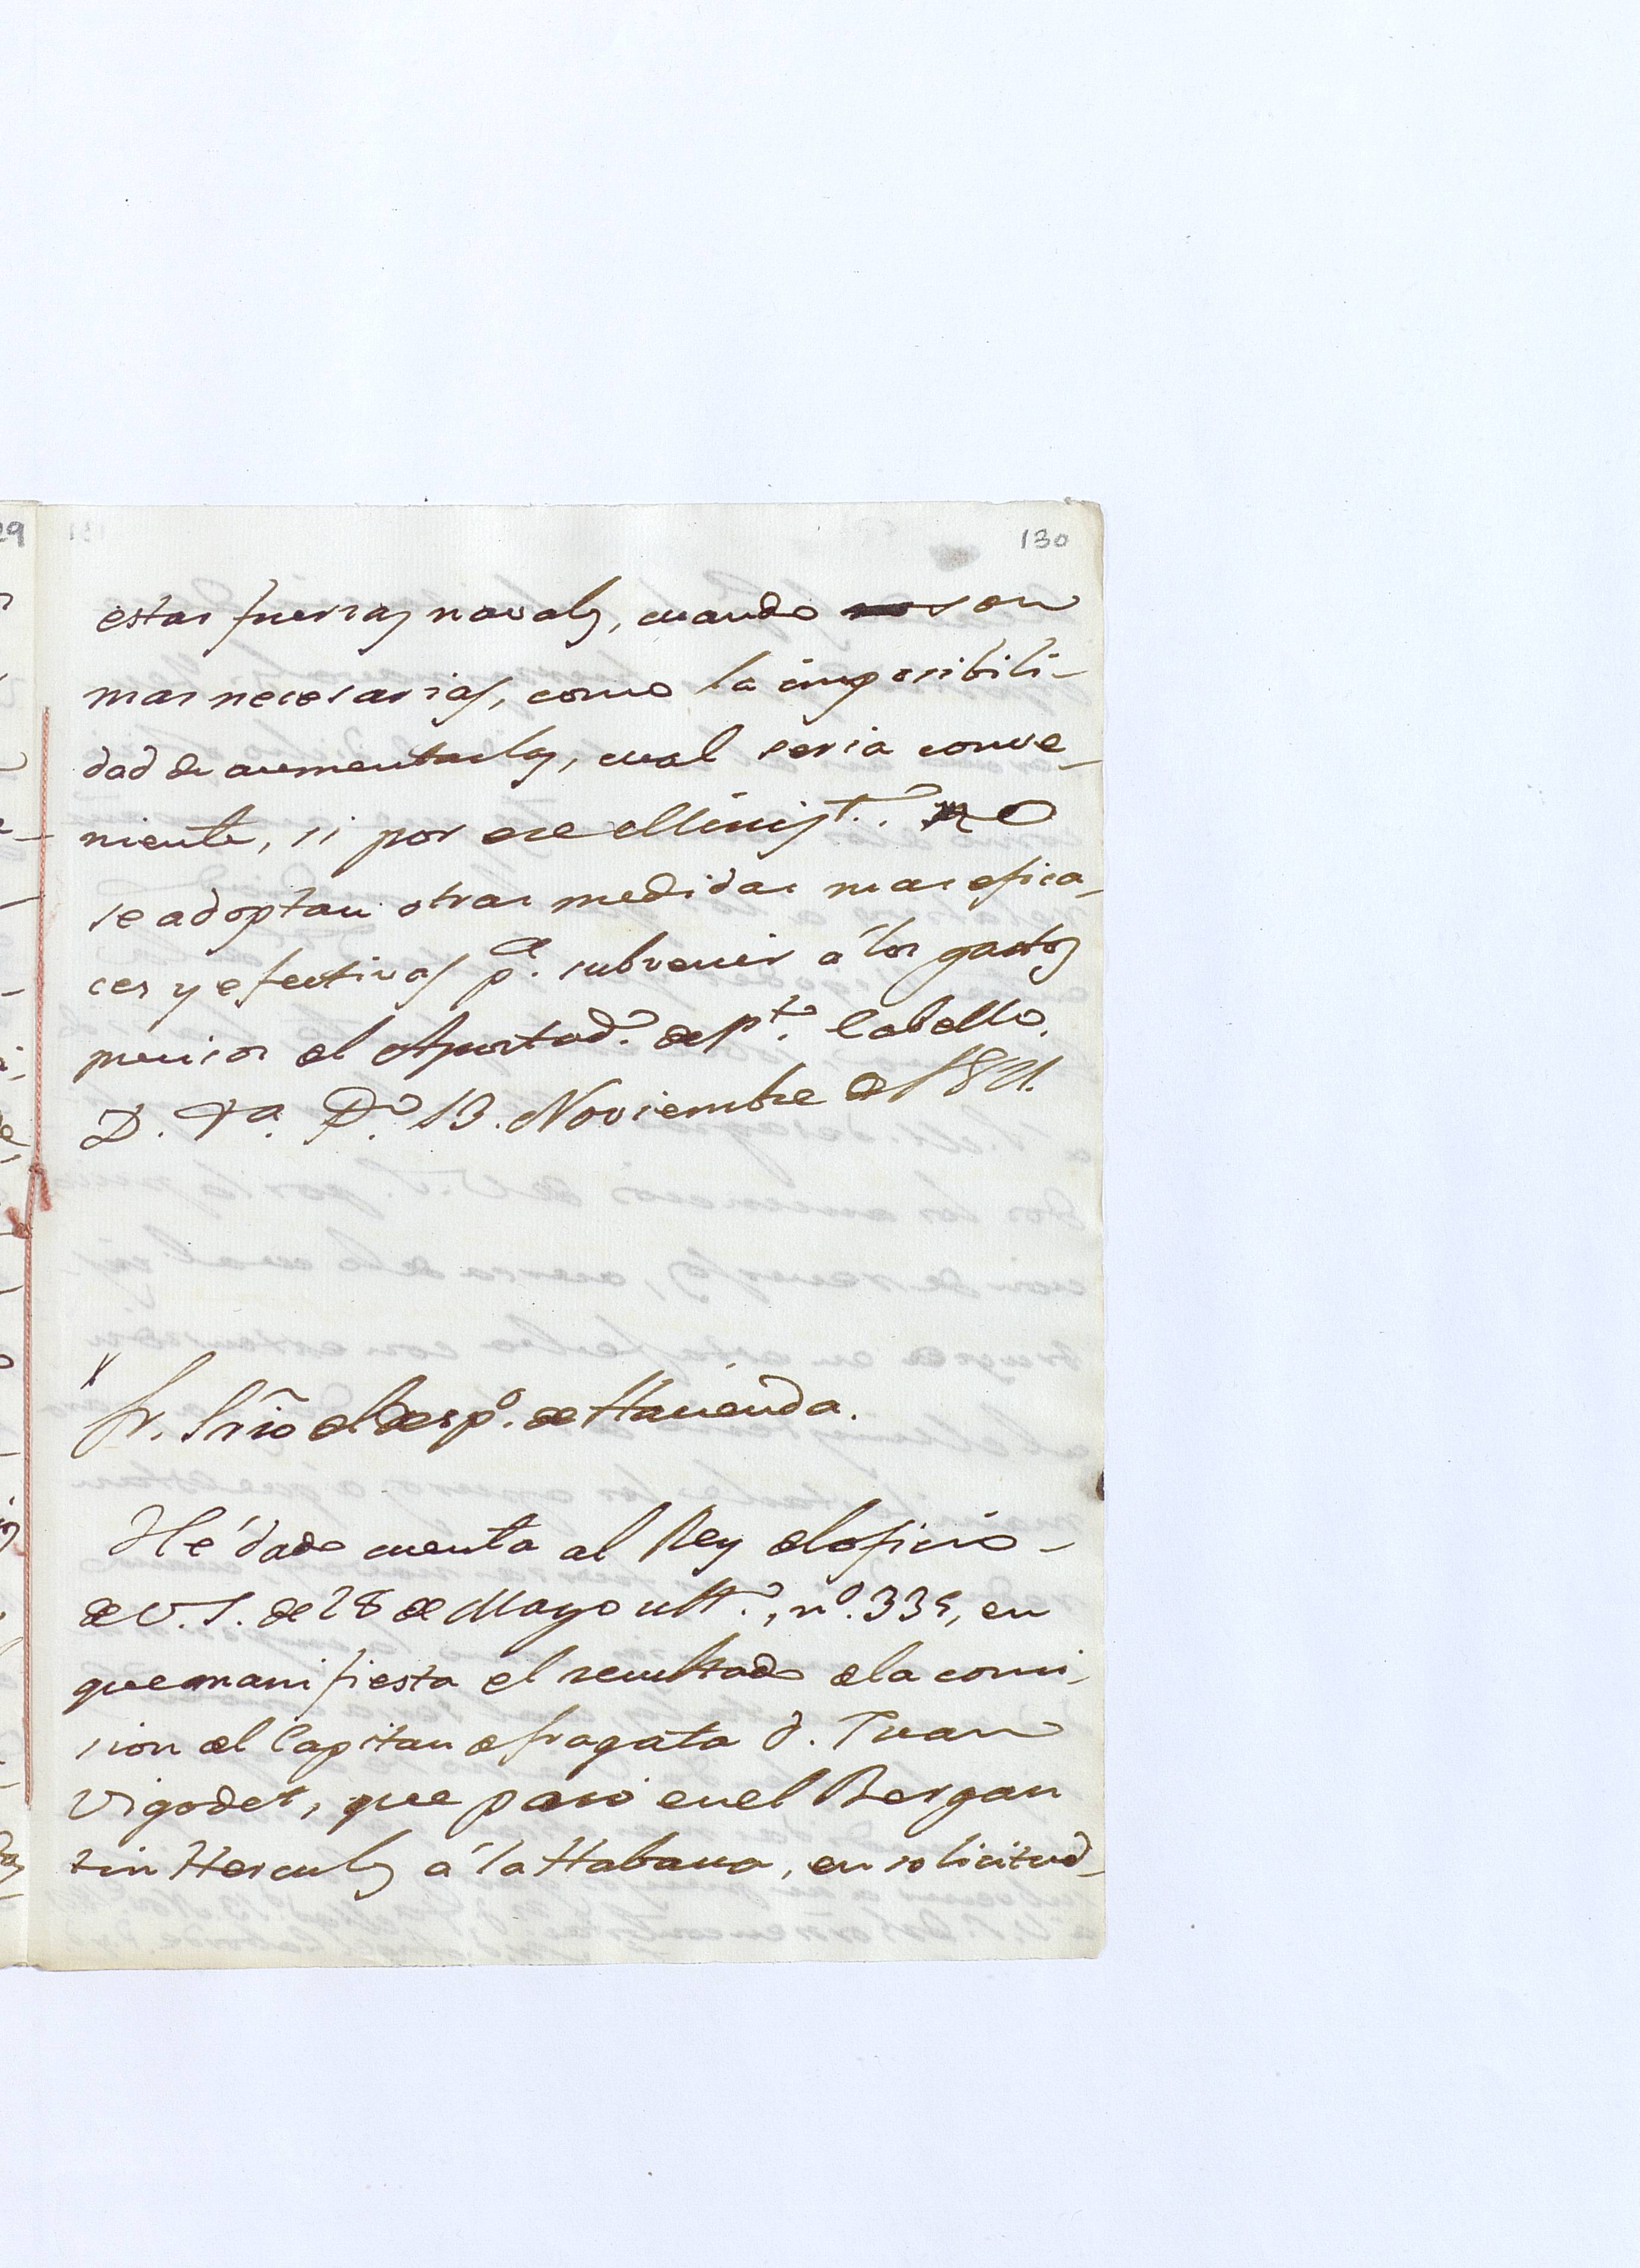 130
estas fuerzas navales, cuando son
mas necesarias, como la imposibili-
dad de aumentarlas, cual seria conve-
niente, si por ese Minist.º no
se adoptan otras medidas mas efica-
ces y efectivas p.ª subvenir á los gastos
precisos del Apostad.º de Pto. Cabello.
D. V.ª P.º 13. Noviembre de 1821.
Sr. Srio del Desp.º de Hacienda.
Hé dado cuenta al Rey del oficio
de V.S. de 28 de Mayo ult.º, nº. 339, en
que manifiesta el resultado de la comi-
sion del Capitan de fragata D. Juan
Vigodet, que pasó en el Bergan
tin Hercules á la Habana, en solicitud